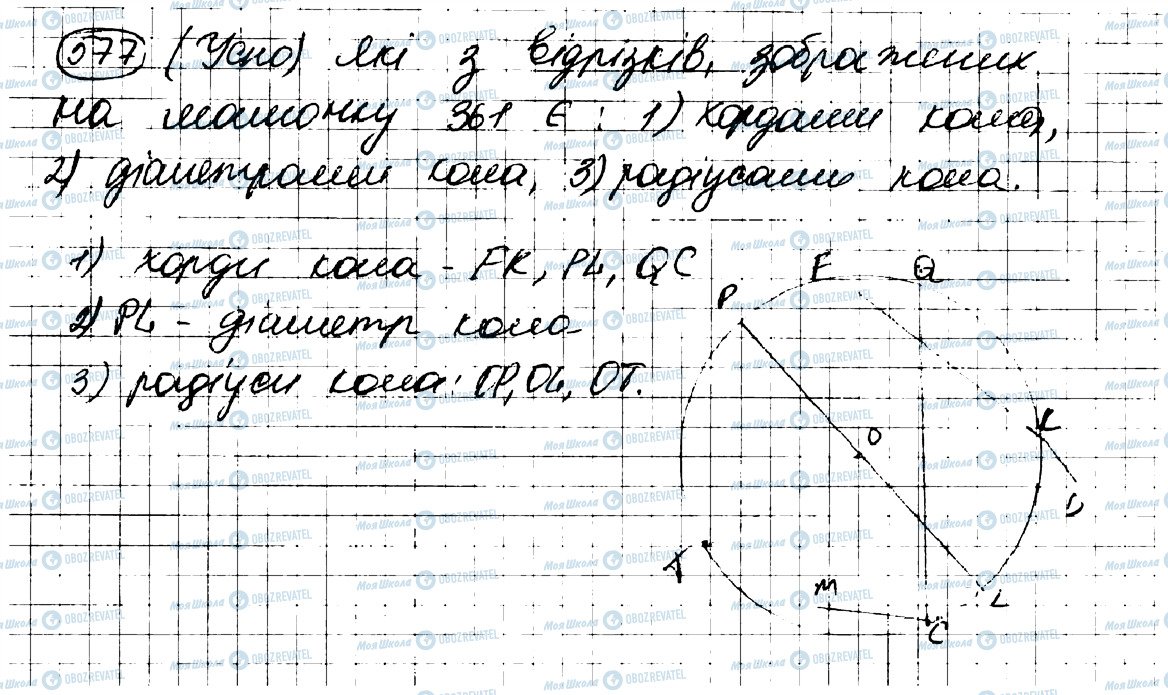 577 (Усно) Які з відрізків, зображених
на малюнку 361 є : 1) хордами кола,
2) діаметрами кола, 3) радіусами кола.
1) хорди кола - FK, PL, QC
2) PL - діаметр кола
3) радіуси кола: OP, OL, OT.
P
F
Q
O
K
D
T
M
L
C
Моя Школа OBOZREVATEL